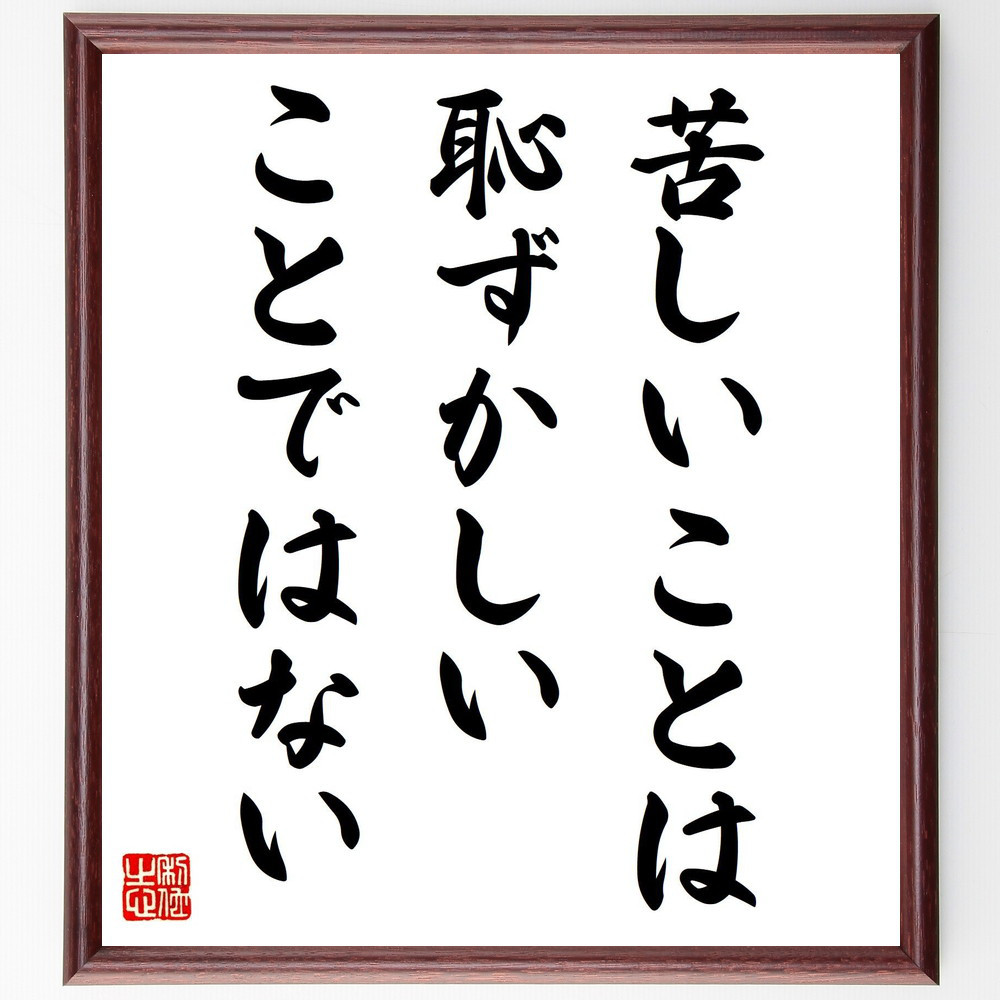 苦しいことは
恥ずかしい
ことではない